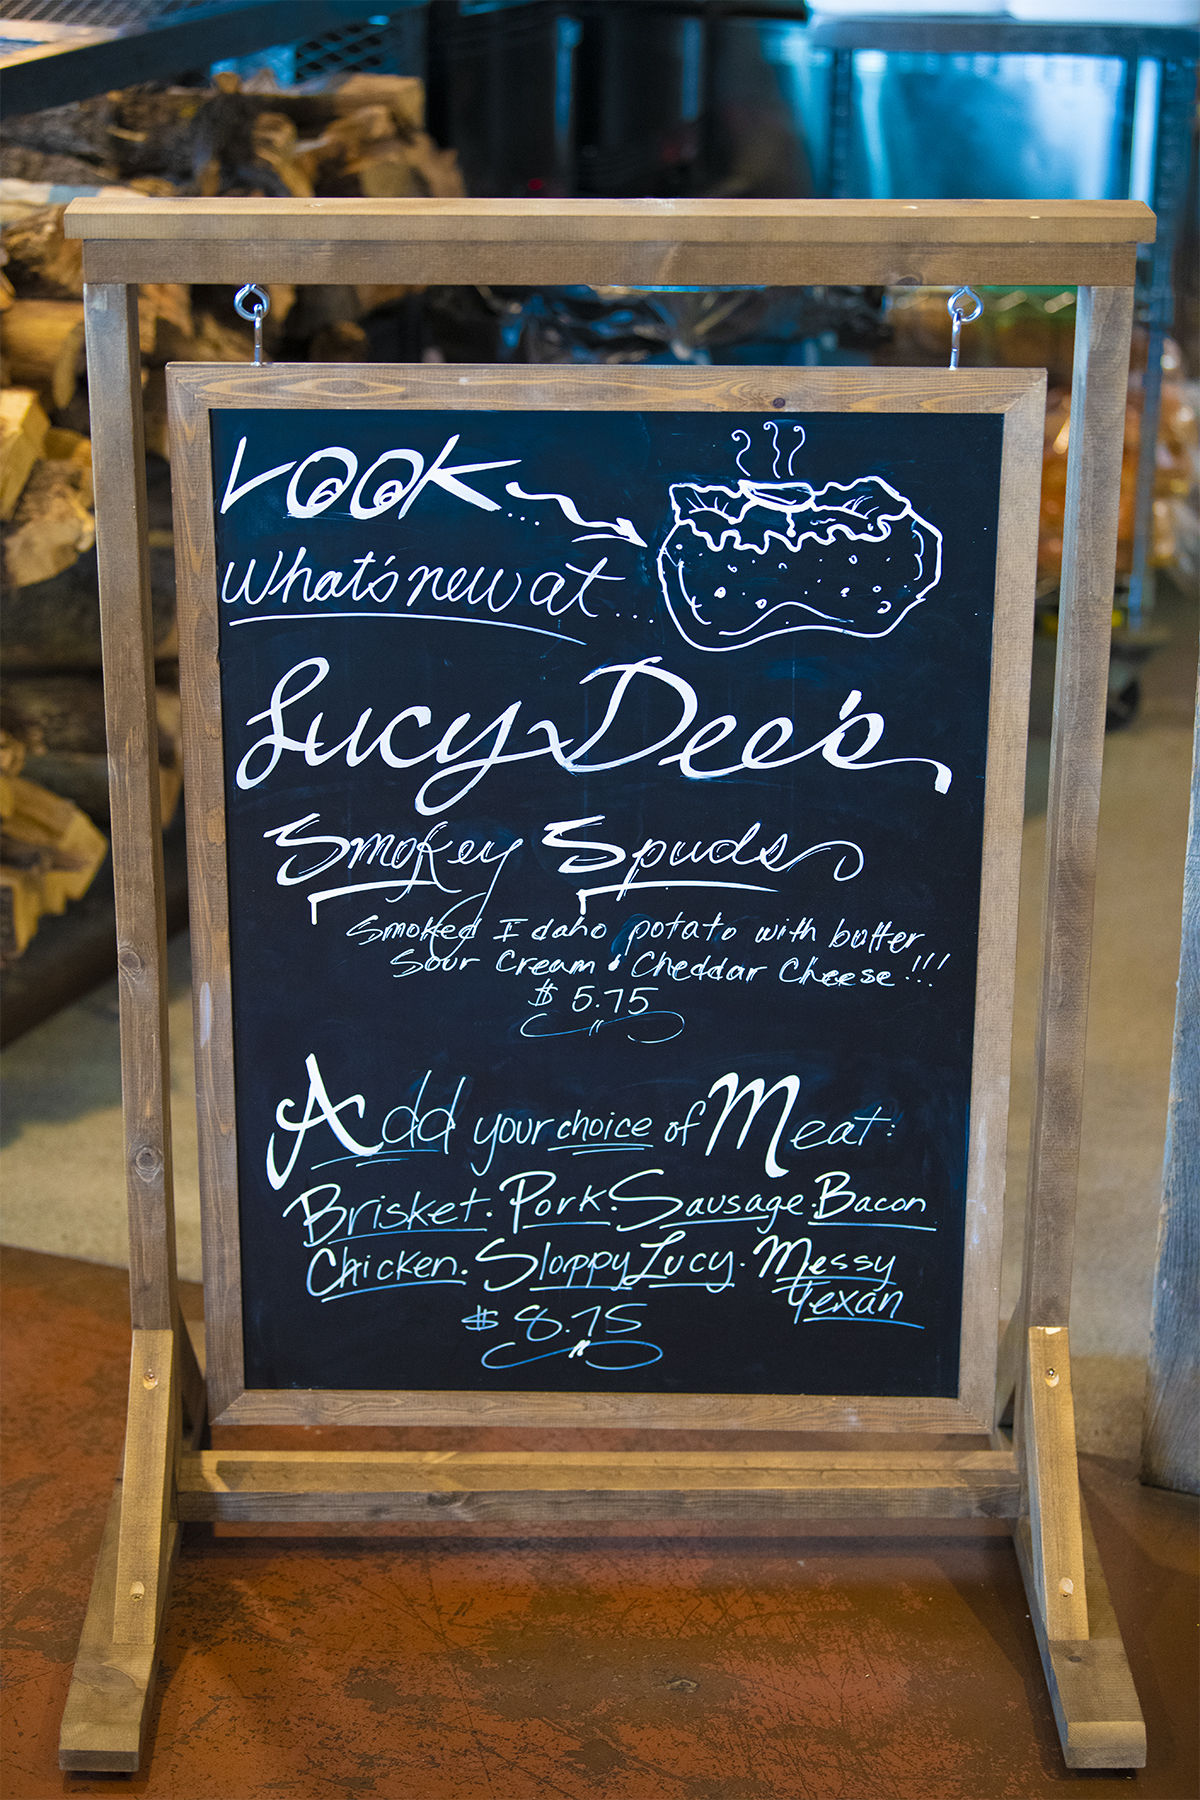 LOOK...
What's new at...
Lucy Dee's
Smokey Spuds
Smoked Idaho potato with butter
Sour Cream • Cheddar Cheese!!!
$ 5.75
Add your choice of Meat:
Brisket. Pork. Sausage. Bacon
Chicken. Sloppy Lucy. Messy
Texan
$ 8.75